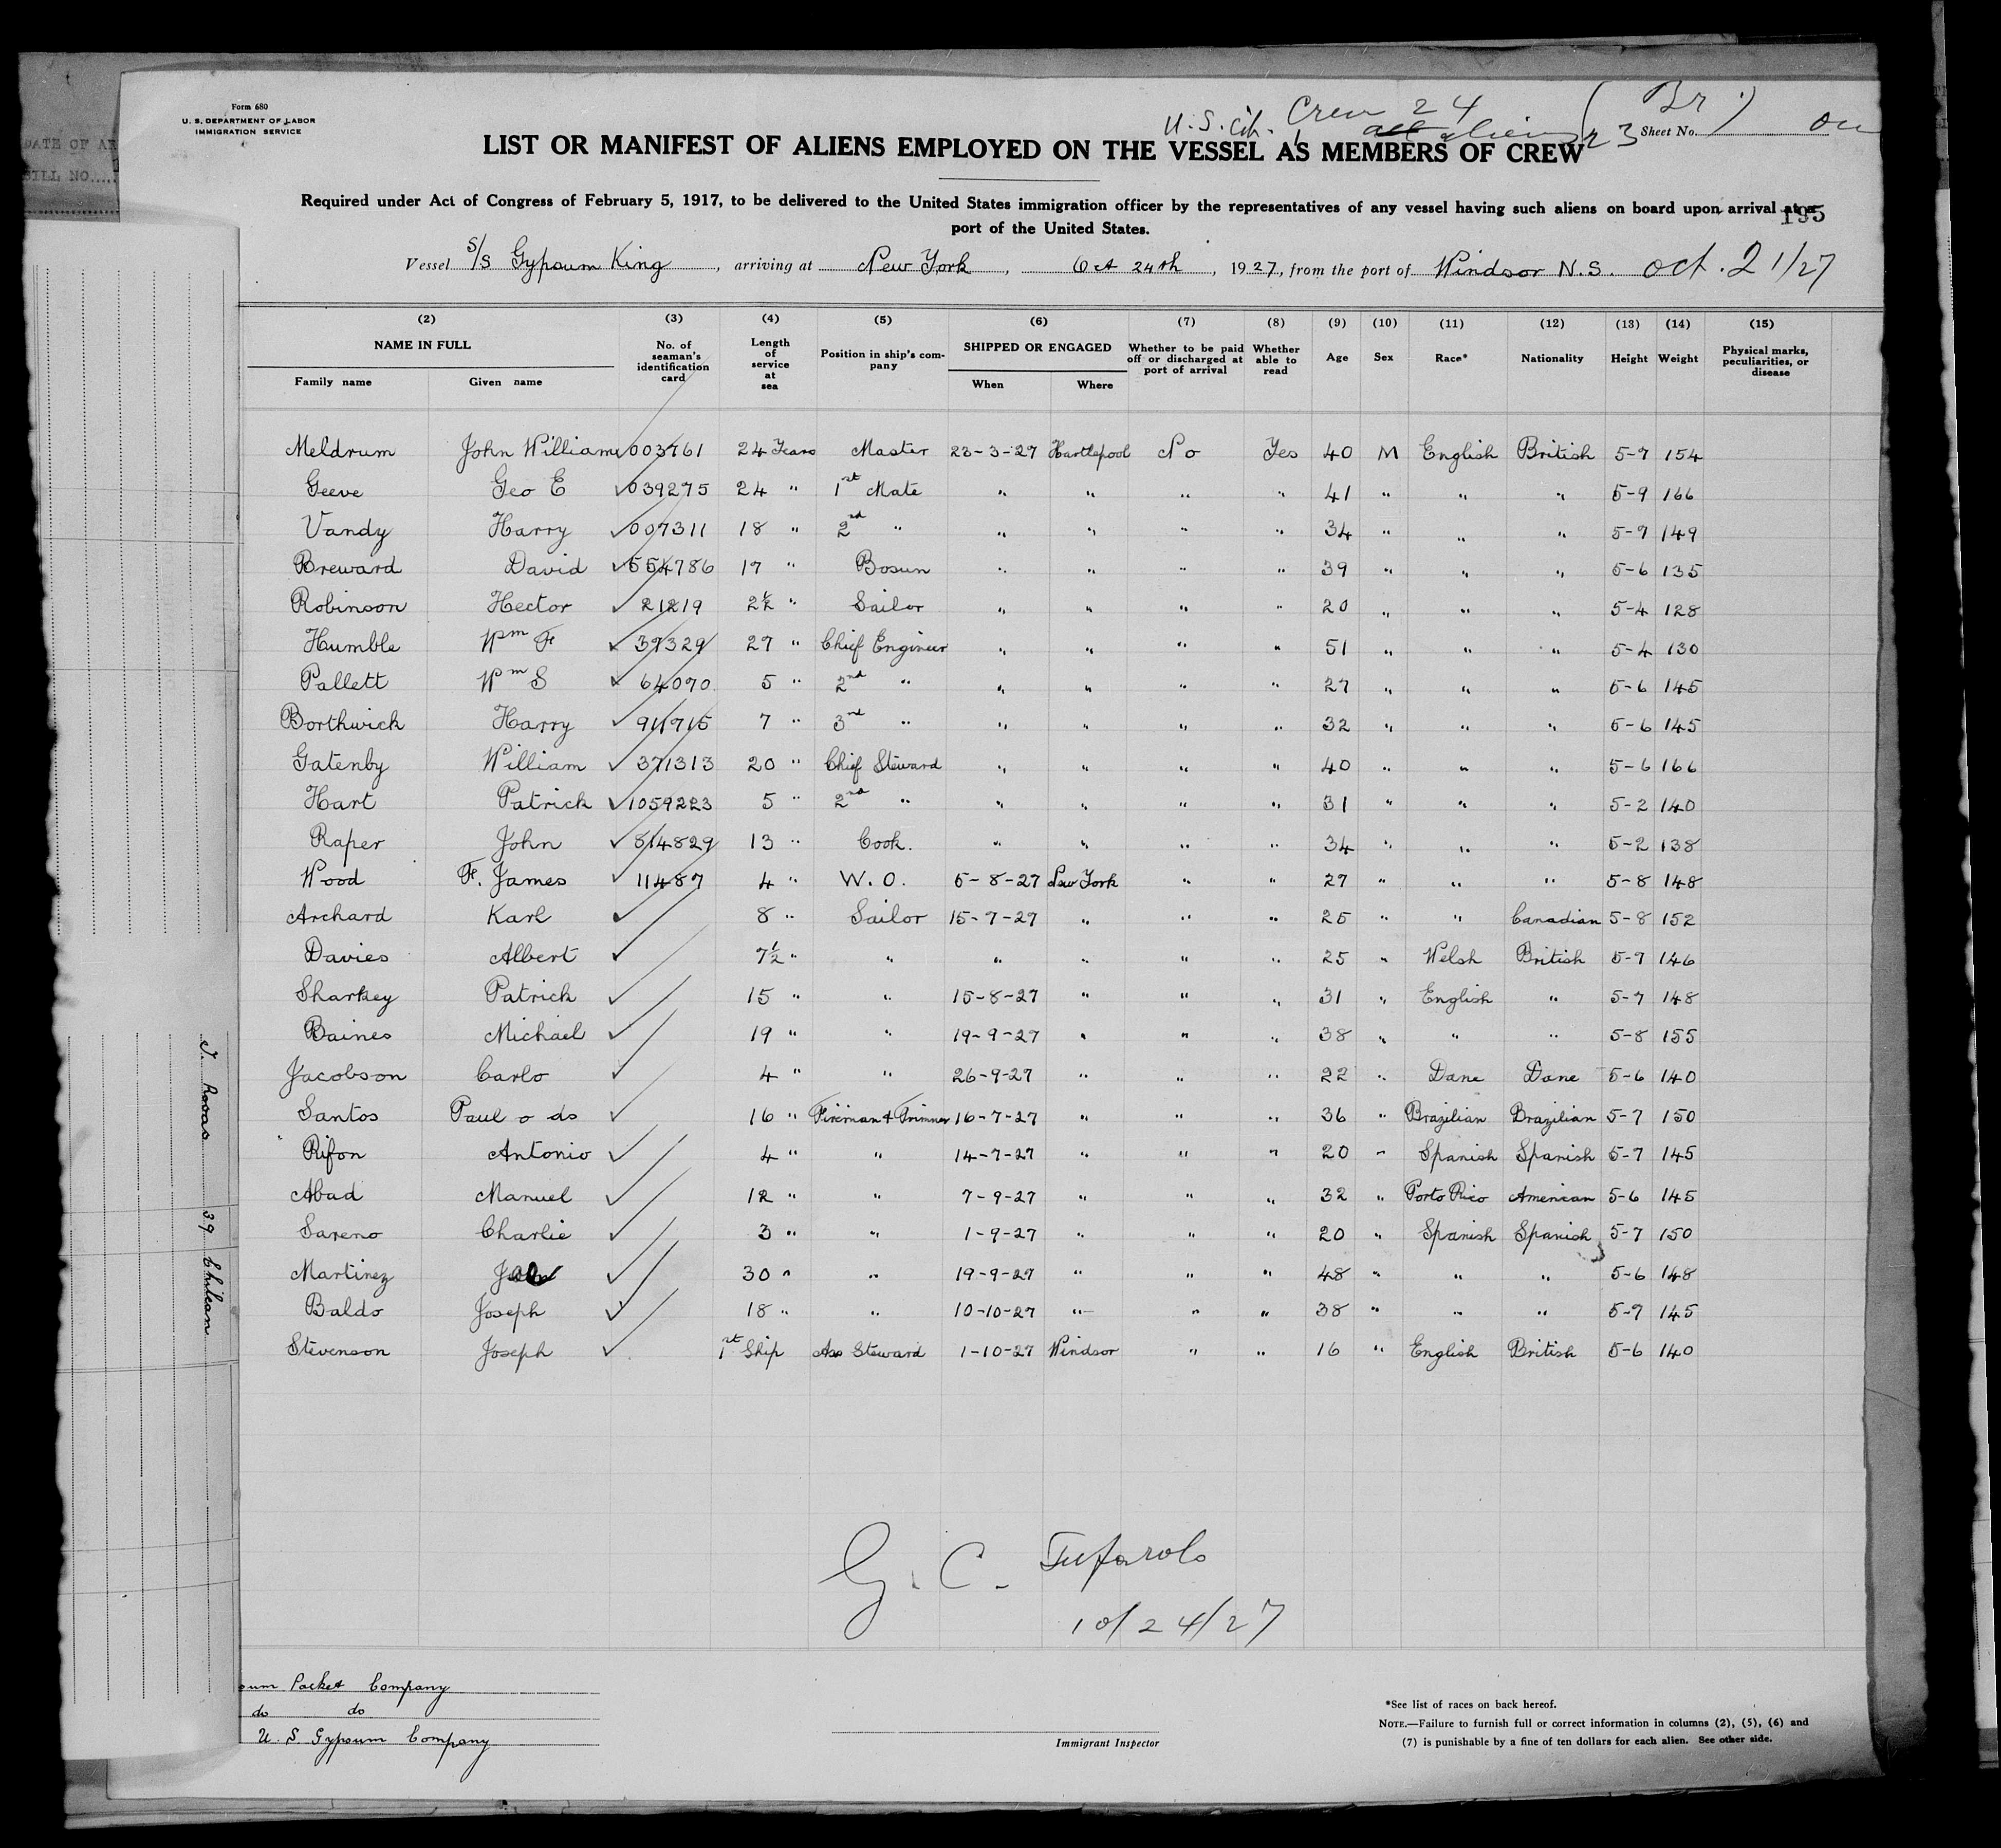 Form 680
U. S. DEPARTMENT OF LABOR
IMMIGRATION SERVICE
Crew 24 (Br.)
U.S. cit. 1 all aliens 23 Sheet No.
LIST OR MANIFEST OF ALIENS EMPLOYED ON THE VESSEL AS MEMBERS OF CREW
Required under Act of Congress of February 5, 1917, to be delivered to the United States immigration officer by the representatives of any vessel having such aliens on board upon arrival at a
port of the United States.
195
Vessel S/S Gypsum King, arriving at New York, Oct 24th, 1927, from the port of Windsor N.S. Oct. 21/27
(2) (3) (4) (5) (6) (7) (8) (9) (10) (11) (12) (13) (14) (15)
NAME IN FULL No. of seaman's identification card Length of service at sea Position in ship's company SHIPPED OR ENGAGED Whether to be paid off or discharged at port of arrival Whether able to read Age Sex Race* Nationality Height Weight Physical marks, peculiarities, or disease
Family name Given name When Where
Meldrum John William 003761 24 Years Master 23-3-27 Hartlepool No Yes 40 M English British 5-7 154
Geeve Geo E 039275 24 " 1st Mate " " " " 41 " " " 5-9 166
Vandy Harry 007311 18 " 2nd " " " " " 34 " " " 5-7 149
Breward David 554786 17 " Bosun " " " " 39 " " " 5-6 135
Robinson Hector 21219 2½ " Sailor " " " " 20 " " " 5-4 128
Humble Wm F 37329 27 " Chief Engineer " " " " 51 " " " 5-4 130
Pallett Wm S 64070 5 " 2nd " " " " " 27 " " " 5-6 145
Borthwick Harry 911715 7 " 3rd " " " " " 32 " " " 5-6 145
Gatenby William 371313 20 " Chief Steward " " " " 40 " " " 5-6 166
Hart Patrick 1059223 5 " 2nd " " " " " 31 " " " 5-2 140
Raper John 814829 13 " Cook. " " " " 34 " " " 5-2 138
Wood F. James 11487 4 " W. O. 5-8-27 New York " " 27 " " " 5-8 148
Archard Karl 8 " Sailor 15-7-27 " " " 25 " " Canadian 5-8 152
Davies Albert 7½ " " " " " " 25 " Welsh British 5-7 146
Sharkey Patrick 15 " " 15-8-27 " " " 31 " English " 5-7 148
Baines Michael 19 " " 19-9-27 " " " 38 " " " 5-8 155
Jacobson Carlo 4 " " 26-9-27 " " " 22 " Dane Dane 5-6 140
Santos Paul o ds 16 " Fireman & Trimmer 16-7-27 " " " 36 " Brazilian Brazilian 5-7 150
Rifon Antonio 4 " " 14-7-27 " " " 20 " Spanish Spanish 5-7 145
Abad Manuel 12 " " 7-9-27 " " " 32 " Porto Rico American 5-6 145
Sareno Charlie 3 " " 1-9-27 " " " 20 " Spanish Spanish 5-7 150
Martinez 30 " " 19-9-27 " " " 48 " " " 5-6 148
Baldo Joseph 18 " " 10-10-27 " " " 38 " " " 5-7 145
Stevenson Joseph 1st Ship Ass Steward 1-10-27 Windsor " " 16 " English British 5-6 140
J. Rovas 39 Chilean
G. C. Tufarolo
10/24/27
sum Packet Company
do do
U. S. Gypsum Company
Immigrant Inspector
*See list of races on back hereof.
NOTE.—Failure to furnish full or correct information in columns (2), (5), (6) and
(7) is punishable by a fine of ten dollars for each alien. See other side.